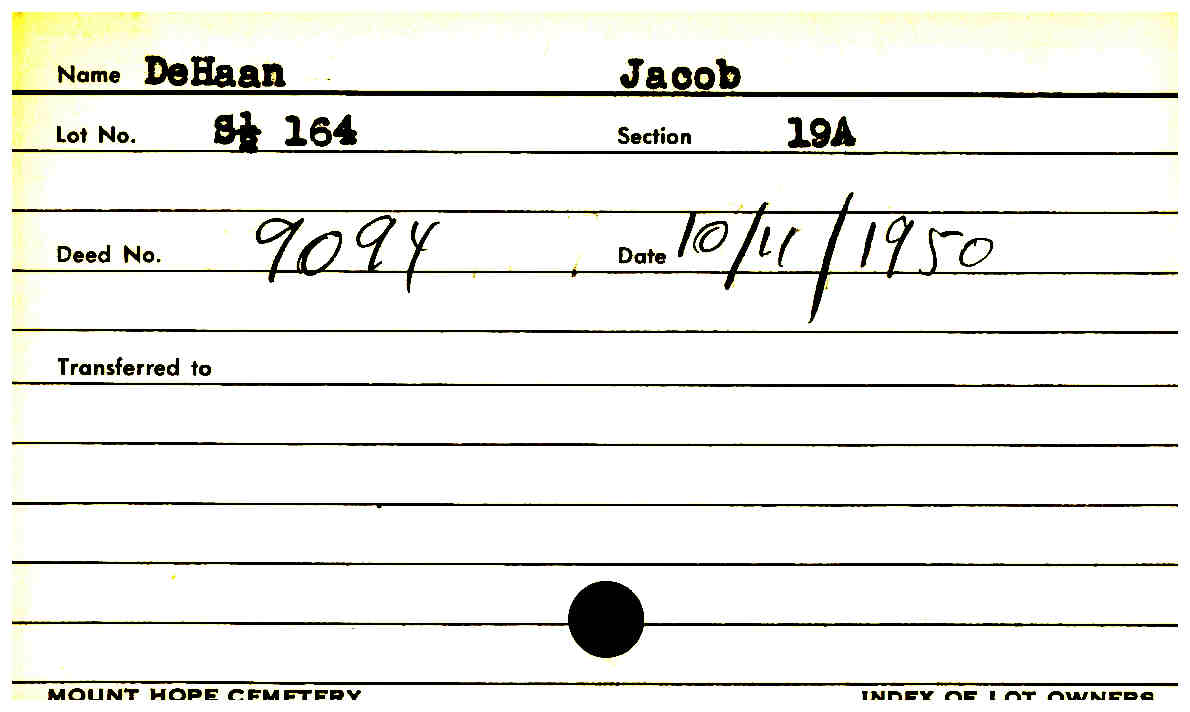 Name DeHaan Jacob
Lot No. S½ 164 Section 19A
Deed No. 9094 Date 10/11/1950
Transferred to
MOUNT HOPE CEMETERY INDEX OF LOT OWNERS